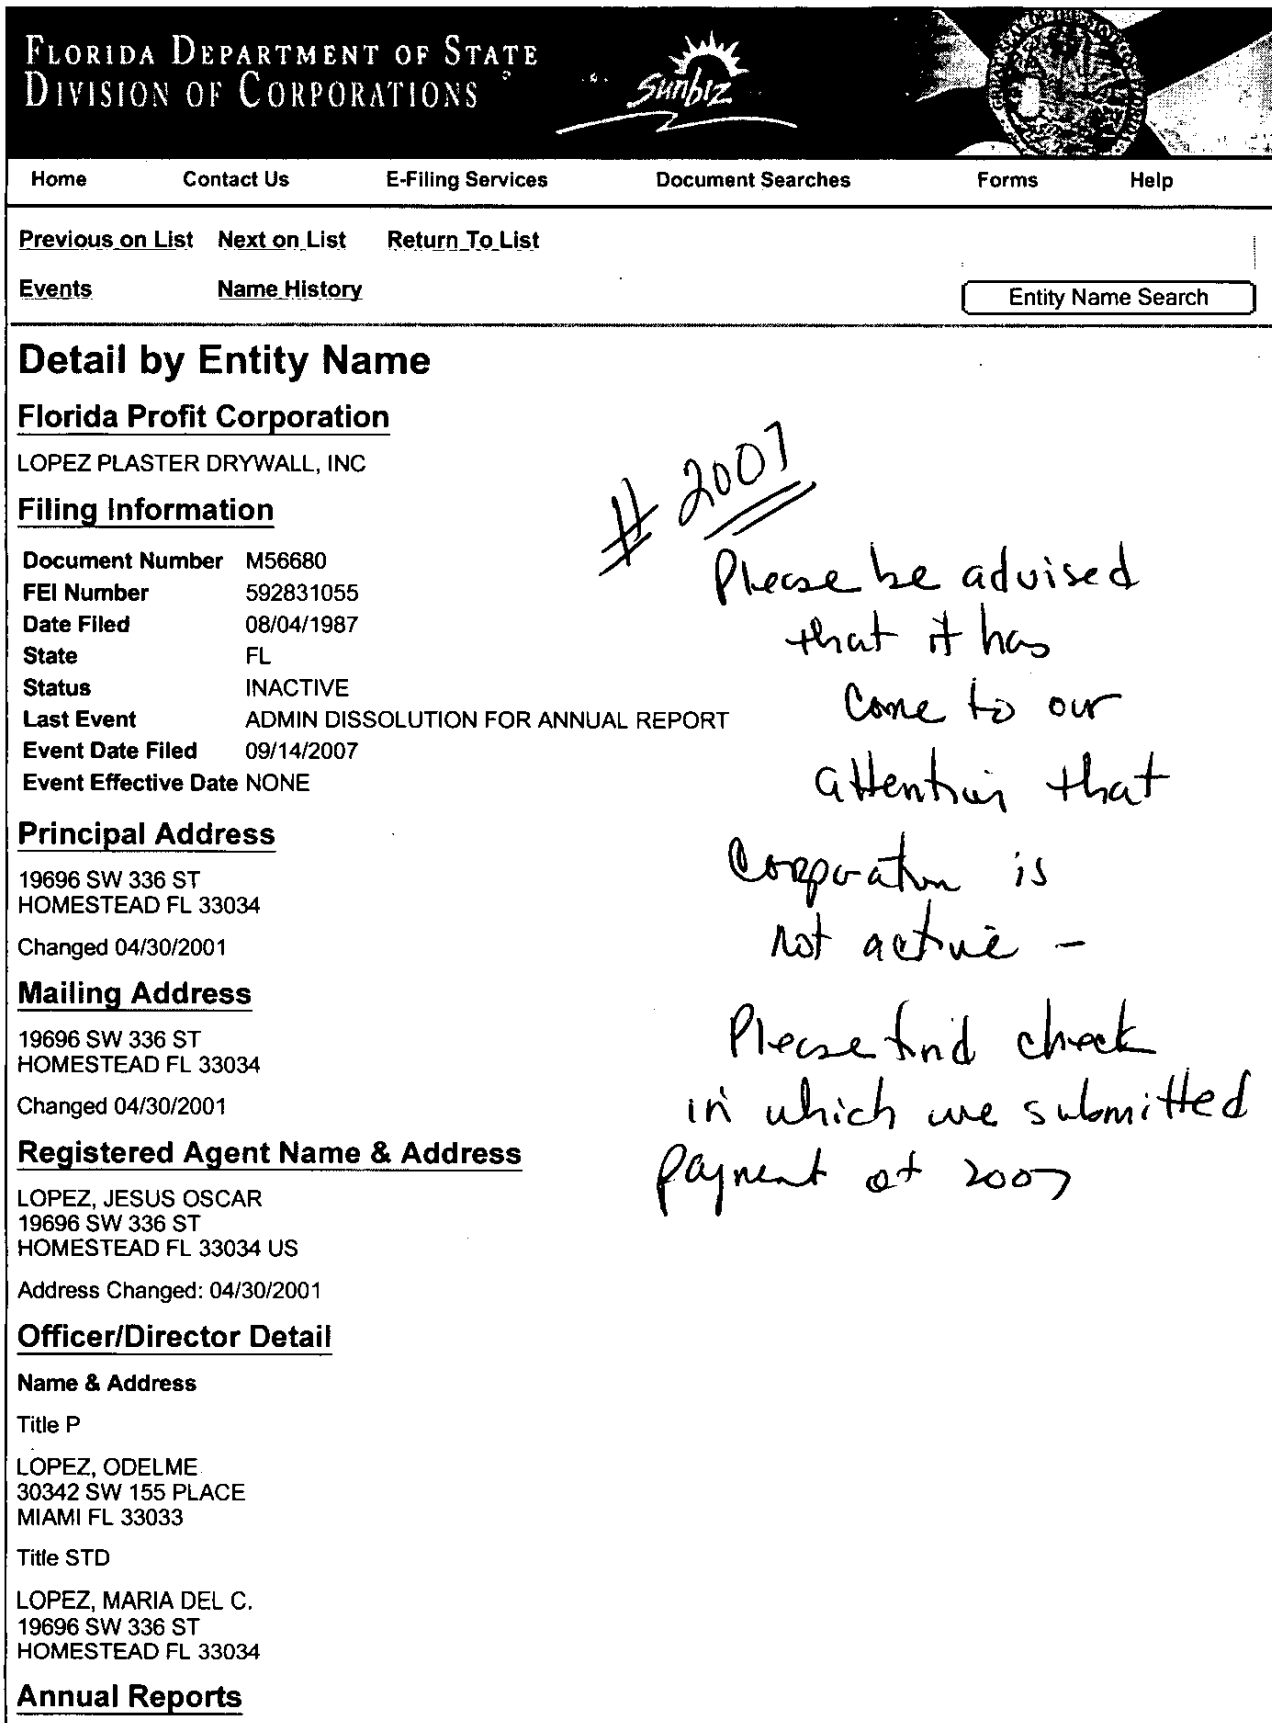 FLORIDA DEPARTMENT OF STATE
DIVISION OF CORPORATIONS
Sunbiz
Home Contact Us E-Filing Services Document Searches Forms Help
Previous on List Next on List Return To List
Events Name History
Entity Name Search
Detail by Entity Name
Florida Profit Corporation
LOPEZ PLASTER DRYWALL, INC
Filing Information
Document Number M56680
FEI Number 592831055
Date Filed 08/04/1987
State FL
Status INACTIVE
Last Event ADMIN DISSOLUTION FOR ANNUAL REPORT
Event Date Filed 09/14/2007
Event Effective Date NONE
Principal Address
19696 SW 336 ST
HOMESTEAD FL 33034
Changed 04/30/2001
Mailing Address
19696 SW 336 ST
HOMESTEAD FL 33034
Changed 04/30/2001
Registered Agent Name & Address
LOPEZ, JESUS OSCAR
19696 SW 336 ST
HOMESTEAD FL 33034 US
Address Changed: 04/30/2001
Officer/Director Detail
Name & Address
Title P
LOPEZ, ODELME
30342 SW 155 PLACE
MIAMI FL 33033
Title STD
LOPEZ, MARIA DEL C.
19696 SW 336 ST
HOMESTEAD FL 33034
Annual Reports
# 2007
Please be advised
that it has
come to our
attention that
Corporation is
not active -
Please find check
in which we submitted
payment of 2007